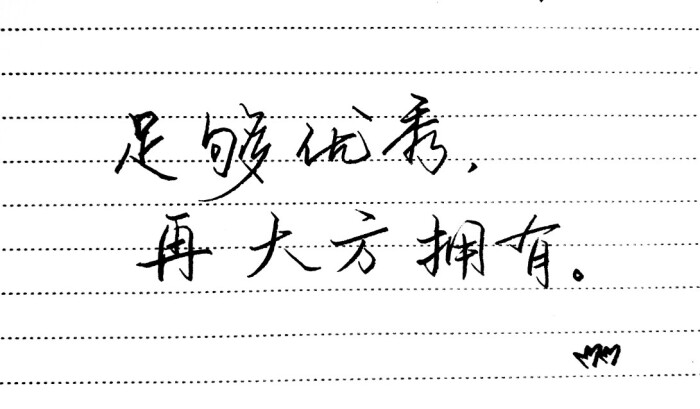 足够优秀，
再大方拥有。